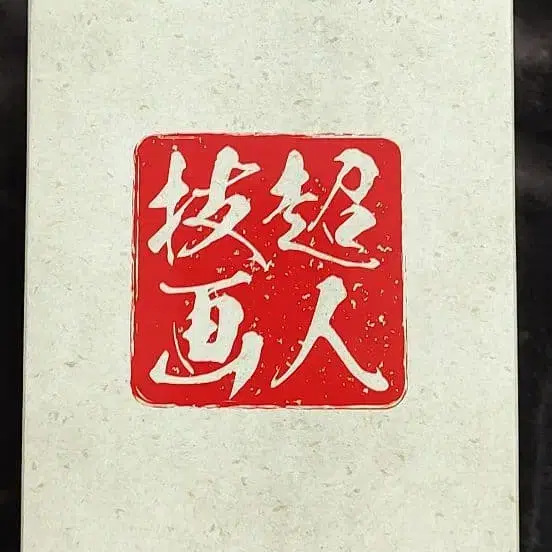 超人
技画